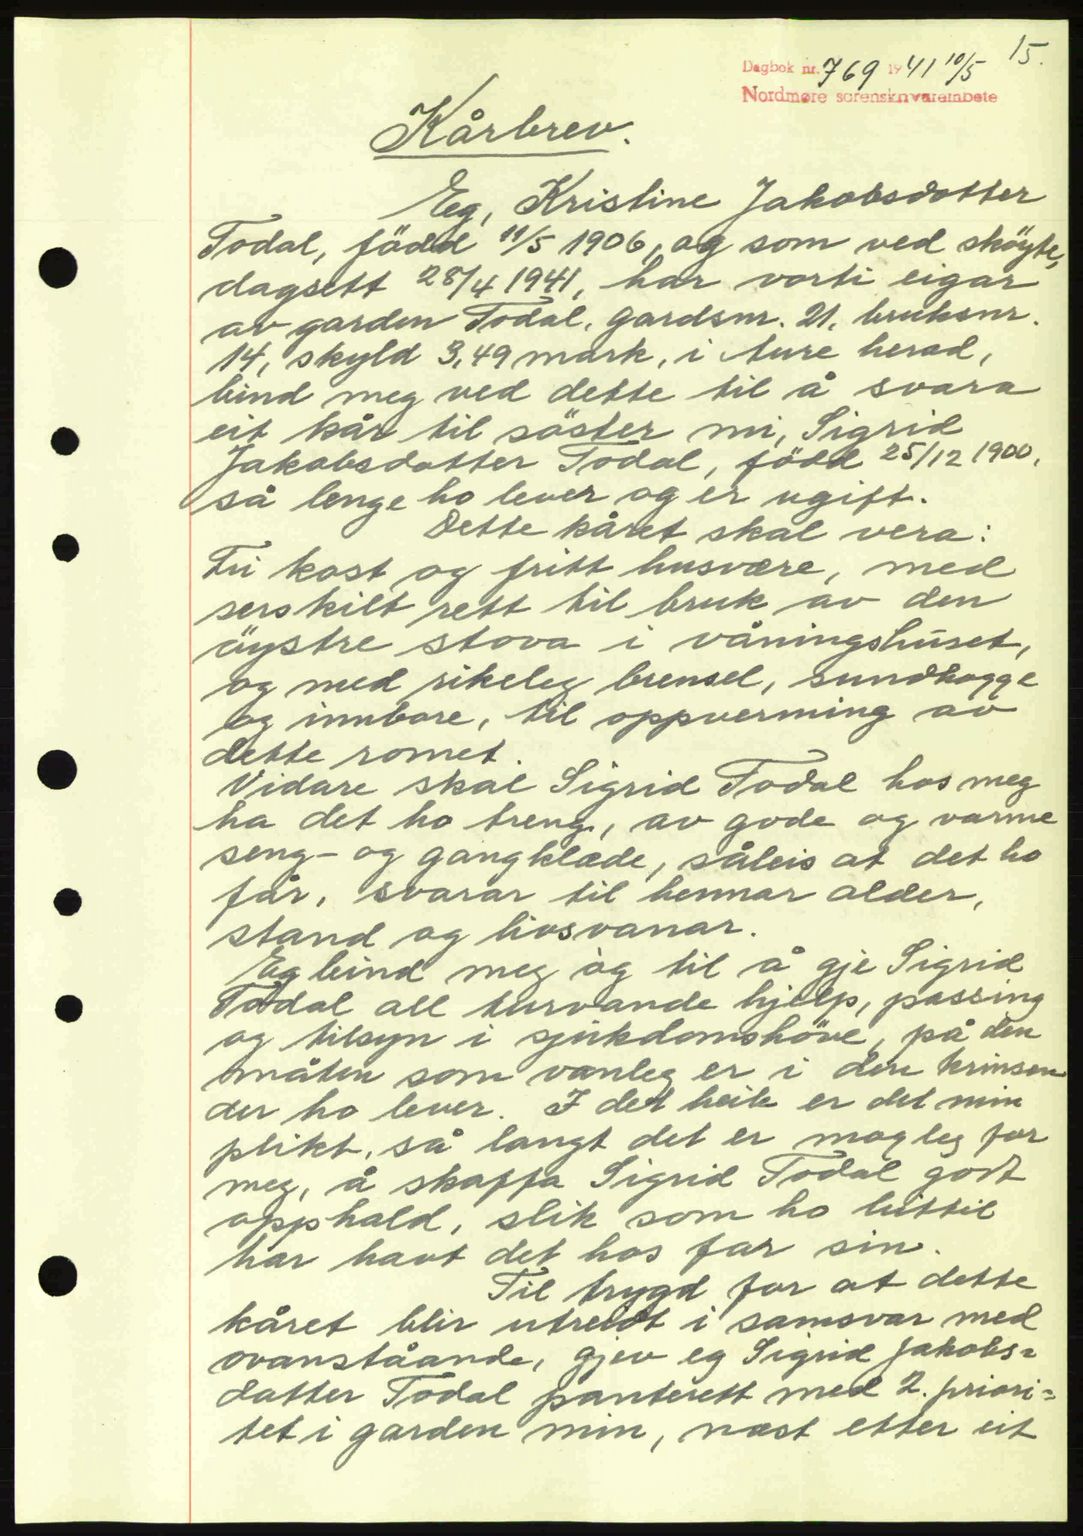 15.
Dagbok nr. 769 1941 10/5
Nordmøre sorenskrivarembete
Kårbrev.
Eg, Kristine Jakobsdotter
Todal, född 11/5 1906, og som ved sköyte,
dagsett 28/4 1941, har vorti eigar
av garden Todal, gardsnr. 21, bruksnr.
14, skyld 3,49 mark, i Aure herad,
bind meg ved dette til å svara
eit kår til söster mi, Sigrid
Jakobsdotter Todal, född 25/12 1900,
så lenge ho lever og er ugift.
Dette kåret skal vera:
Fri kost og fritt husvære, med
serskilt rett til bruk av den
öystre stova i våningshuset,
og med rikeleg brensel, sundhogge
og innbore, til oppverming av
dette romet.
Vidare skal Sigrid Todal hos meg
ha det ho treng, av gode og varme
seng- og gangklæde, såleis at det ho
får, svarar til hennar alder,
stand og livsvanar.
Eg bind meg òg til å gje Sigrid
Todal all turvande hjelp, passing
og tilsyn i sjukdomshöve, på den
måten som vanleg er i den krinsen
der ho lever. I det heile er det min
plikt, så langt det er mogleg for
meg, å skaffa Sigrid Todal godt
opphald, slik som ho hittil
har havt det hos far sin.
Til trygd for at dette
kåret blir utreidt i samsvar med
ovanståande, gjev eg Sigrid Jakobs=
dotter Todal panterett med 2. priori=
tet i garden min, næst etter eit